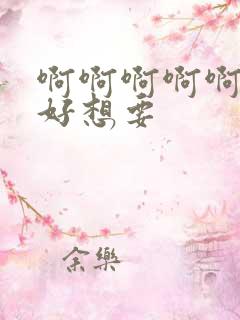 啊啊啊啊啊
好想要
余樂